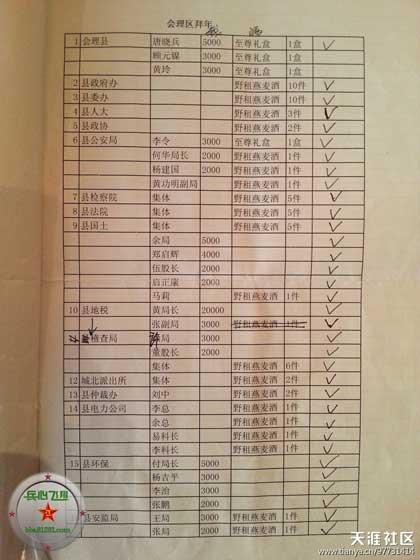 会理区拜年
酒
1 会理县 唐晓兵 5000 至尊礼盒 1盒
顾元镍 3000 至尊礼盒 1盒
黄玲 3000 至尊礼盒 1盒
2 县政府办 野租燕麦酒 10件
3 县委办 野租燕麦酒 10件
4 县人大 野租燕麦酒 3件
5 县政协 野租燕麦酒 2件
6 县公安局 李令 3000 至尊礼盒 1盒
何华局长 2000 野租燕麦酒 1件
杨建国 2000 野租燕麦酒 1件
黄功明副局 野租燕麦酒 1件
7 县检察院 集体 野租燕麦酒 5件
8 县法院 集体 野租燕麦酒 5件
9 县国土 集体 野租燕麦酒 5件
余局 5000
郑启辉 4000
伍股长 2000
启正康 2000
马莉 野租燕麦酒 1件
10 县地税 黄局长 20000
张副局 3000 野租燕麦酒 1件
稽查局 局 3000
董股长 2000
集体 野租燕麦酒 6件
12 城北派出所 集体 野租燕麦酒 2件
13 县仲裁办 刘中 2000 野租燕麦酒 2件
14 县电力公司 李总 野租燕麦酒 1件
余总 野租燕麦酒 1件
易科长 野租燕麦酒 1件
李科长 野租燕麦酒 1件
15 县环保 付局长 5000
杨吉平 3000
李治 3000
张鹏 2000
县安监局 王局 3000 野租燕麦酒 1件
张局 2000 野租燕麦酒 1件
民心飞想
bbs.81281.com
天涯社区
www.tianya.cn/97731414